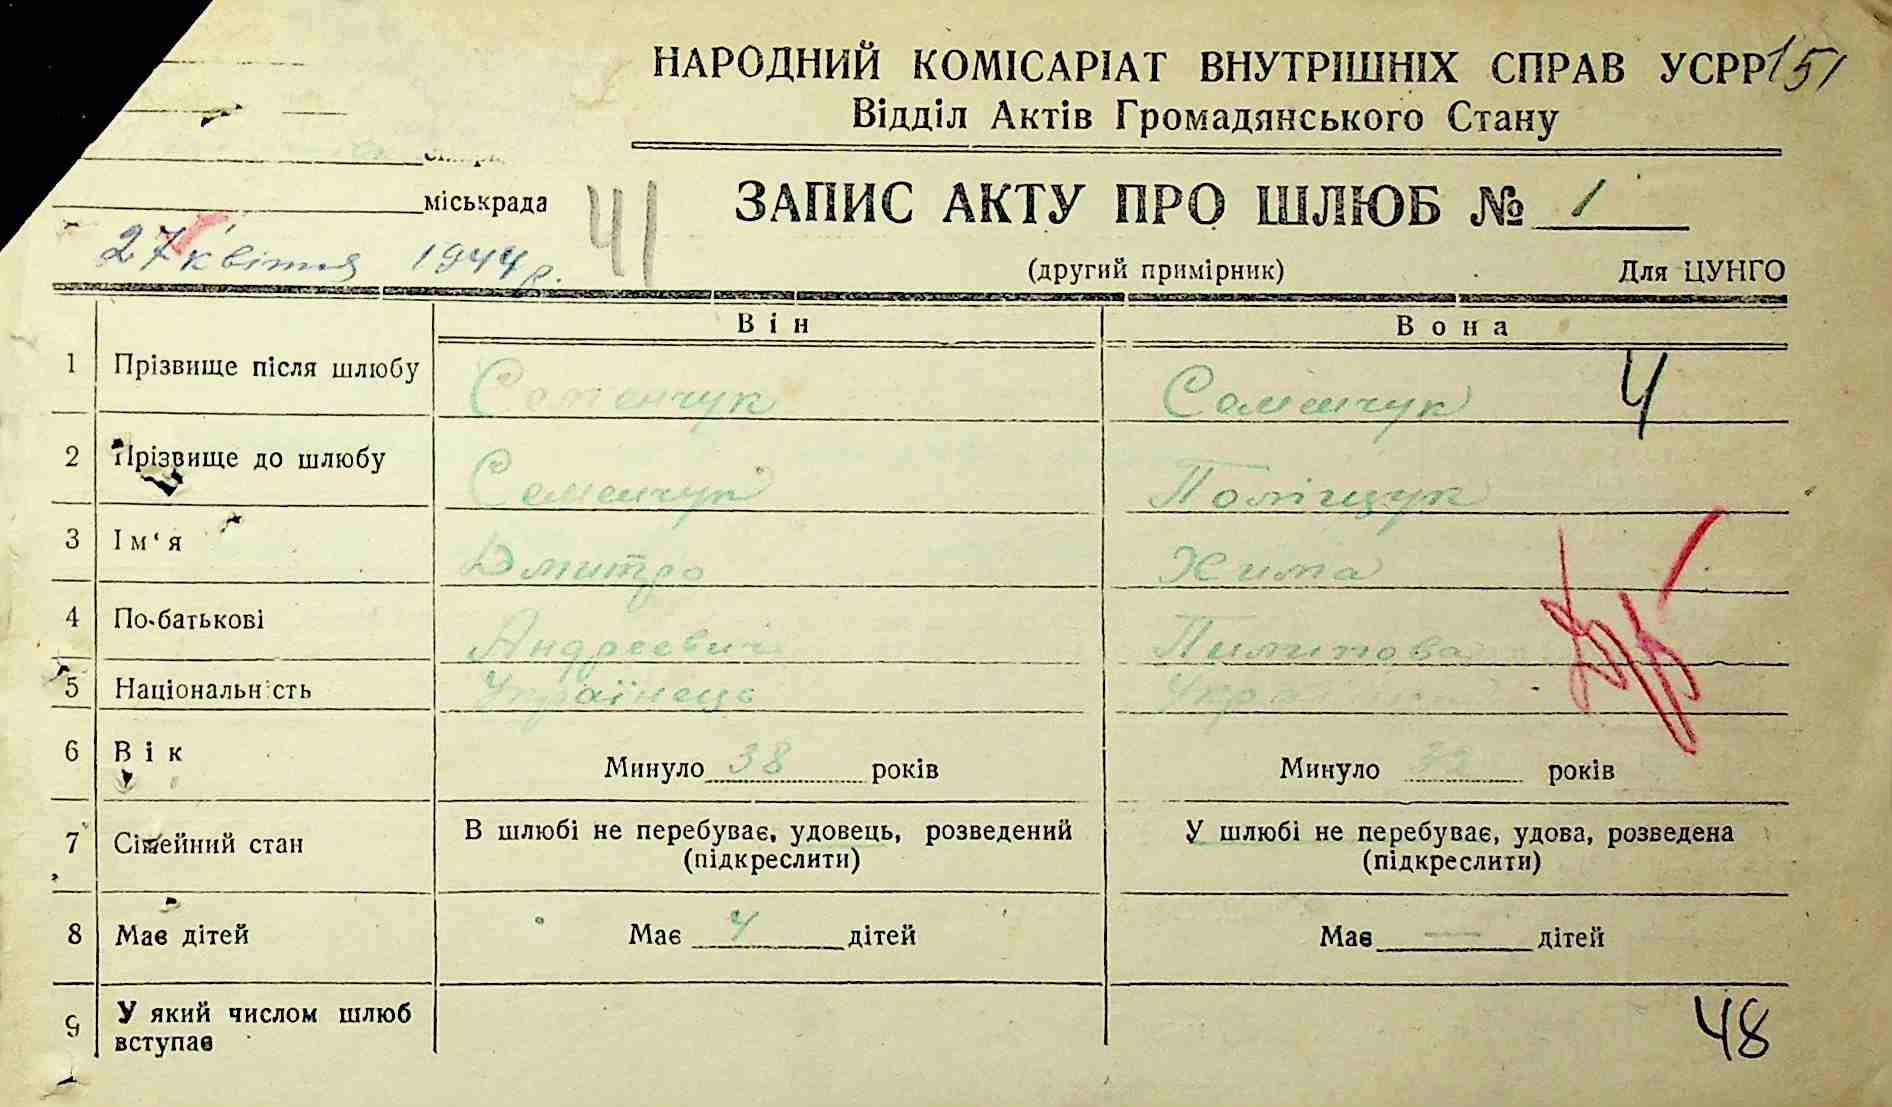 НАРОДНИЙ КОМІСАРІАТ ВНУТРІШНІХ СПРАВ УСРР 151
Відділ Актів Громадянського Стану
міськрада
ЗАПИС АКТУ ПРО ШЛЮБ № 1
27 квітня 1944 р. 41
(другий примірник) Для ЦУНГО
Він Вона
1 Прізвище після шлюбу Семенчук Семенчук 4
2 Прізвище до шлюбу Семенчук Поліщук
3 Ім‘я Дмитро Хима
4 По-батькові Андреевич Пилипова
5 Національність Українець
6 Вік Минуло 38 років Минуло років
7 Сімейний стан В шлюбі не перебуває, удовець, розведений У шлюбі не перебуває, удова, розведена
(підкреслити) (підкреслити)
8 Має дітей Має 4 дітей Має — дітей
9 У який числом шлюб
вступає
48